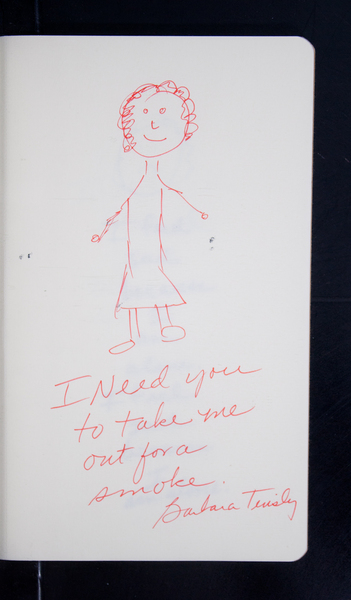 I Need you
to take me
out for a
smoke.
Barbara Tinsley